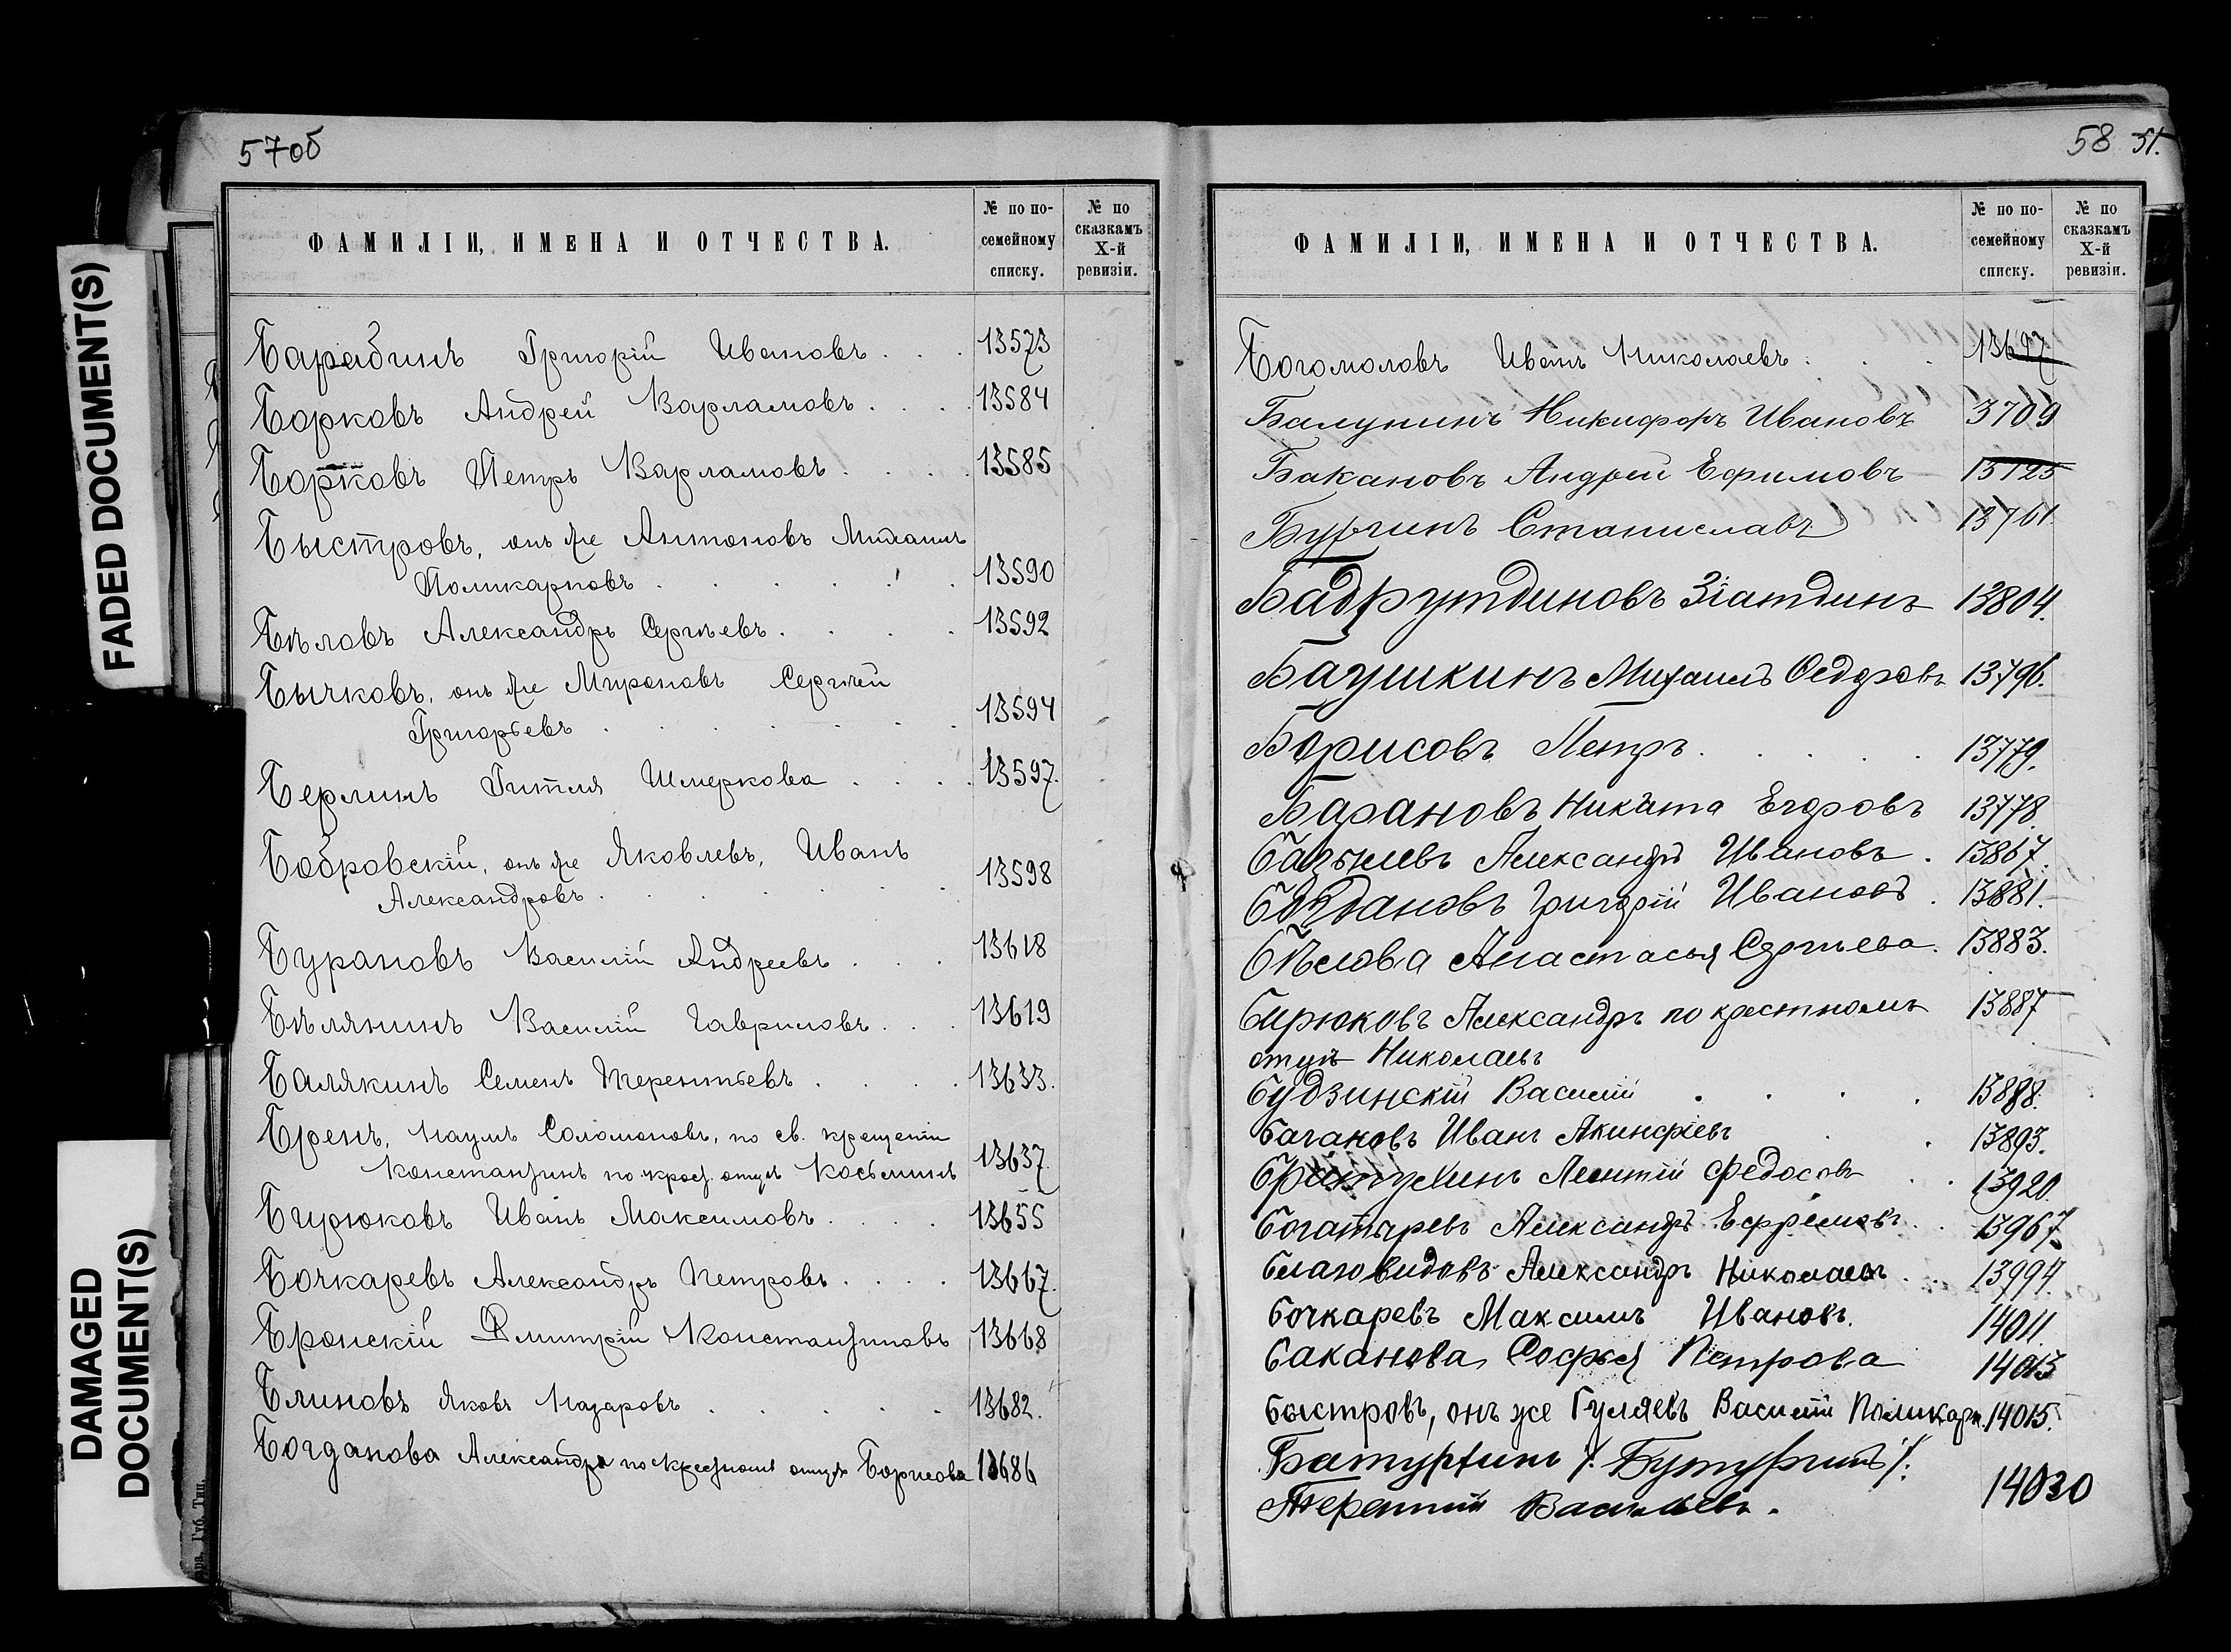 57об
ФАМИЛІИ, ИМЕНА И ОТЧЕСТВА.
№ по по-
семейному
списку.
№ по
сказкамъ
X-й
ревизіи.
Барабинъ Григорій Ивановъ . . . 13573
Борковъ Андрей Варламовъ . . . . 13584
Борковъ Петръ Варламовъ . . . . 13585
Быстровъ, онъ же Антоновъ Михаилъ
Поликарповъ . . . . . . 13590
Бѣловъ Александръ Сергѣевъ . . . . 13592
Бычковъ, онъ же Мироновъ Сергѣй
Григорьевъ . . . . . . 13594
Берлинъ Гитля Шмеркова . . . . 13597.
Бобровскій, онъ же Яковлевъ, Иванъ
Александровъ . . . . . 13598
Бурановъ Василій Андреевъ . . . 13618
Бѣлянинъ Василій Гавриловъ . . . 13619
Балякинъ Семенъ Терентьевъ . . . . 13633.
Бренъ, Наумъ Соломоновъ, по св. крещеніи
Константинъ по крест. отцѣ Косьминъ 13637.
Бирюковъ Иванъ Максимовъ . . . . 13655
Бочкаревъ Александръ Петровъ . . . . 13667.
Бронскій Дмитрій Константиновъ 13668
Блиновъ Яковъ Назаровъ . . . . . 13682.
Богданова Александра по крестному отцу Борисова 13686
58 51.
ФАМИЛІИ, ИМЕНА И ОТЧЕСТВА.
№ по по-
семейному
списку.
№ по
сказкамъ
X-й
ревизіи.
Богомоловъ Иванъ Николаевъ . . . 13697
Балунинъ Никифоръ Ивановъ 3709
Бакановъ Андрей Ефимовъ
Бургинъ Станиславъ 13761.
Бадрутдиновъ Зіатдинъ 13804.
Баушкинъ Михаилъ Ѳедоровъ 13796.
Борисовъ Петръ . . . . . 13779.
Барановъ Никита Егоровъ 13778
Александръ Ивановъ . 13867.
Богдановъ Григорій Ивановъ . 13881.
Бѣлова Анастасья Сергѣева . 13883.
Бирюковъ Александръ по крестному 13887
отцу Николаевъ
Будзинскій Василій . . . . 13888.
Багановъ Иванъ Акинфіевъ . . 13893.
Леонтій Федосовъ . . 13920.
Богатыревъ Александръ Ефремовъ . . 13967.
Благовидовъ Александръ Николаевъ . . 13994.
Бочкаревъ Максимъ Ивановъ. 14011
Баканова Софья Петрова 14013
Быстровъ, онъ же Гуляевъ Василій Поликарп. 14015.
Батургинъ /. Бутургинъ /.
Терентій Васильевъ. 14030
FADED DOCUMENT(S)
DAMAGED
DOCUMENT(S)
Губ. Тип.